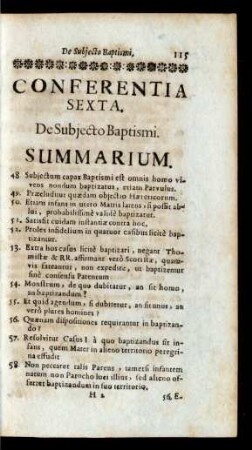 De Subjecto Baptismi, 115
CONFERENTIA
SEXTA.
De Subjecto Baptismi.
SUMMARIUM.
48 Subjectum capax Baptismi est omnis homo vi-
vens nondum baptizatus, etiam Parvulus.
49. Præcluditur quædam objectio Hæreticorum.
50. Etiam infans in utero Matris latens, si possit ab-
lui, probabilissimè validè baptizatur.
51. Satisfit cuidam instantiæ contra hoc.
52. Proles infidelium in quatuor casibus licitè bap-
tizantur.
53. Extra hos casus licitè baptizari, negant Tho-
mistæ & RR. affirmant verò Scotistæ, quam-
vis fateantur, non expedire, ut baptizentur
sinè consensu Parentum
54. Monstrum, de quo dubitatur, an sit homo,
an baptizandum?
55. Et quid agendum, si dubitetur, an sit unus, an
verò plures homines?
56. Quænam dispositiones requirantur in baptizan-
do?
57. Resolvitur Casus I. à quo baptizandus sit in-
fans, quem Mater in alieno territorio peregri-
na effudit
58 Non peccaret talis Parens, tametsi infantem
natum non Parocho loci illius, sed alteno of-
ferret baptizandum in suo territorio,
H 2 56. E-